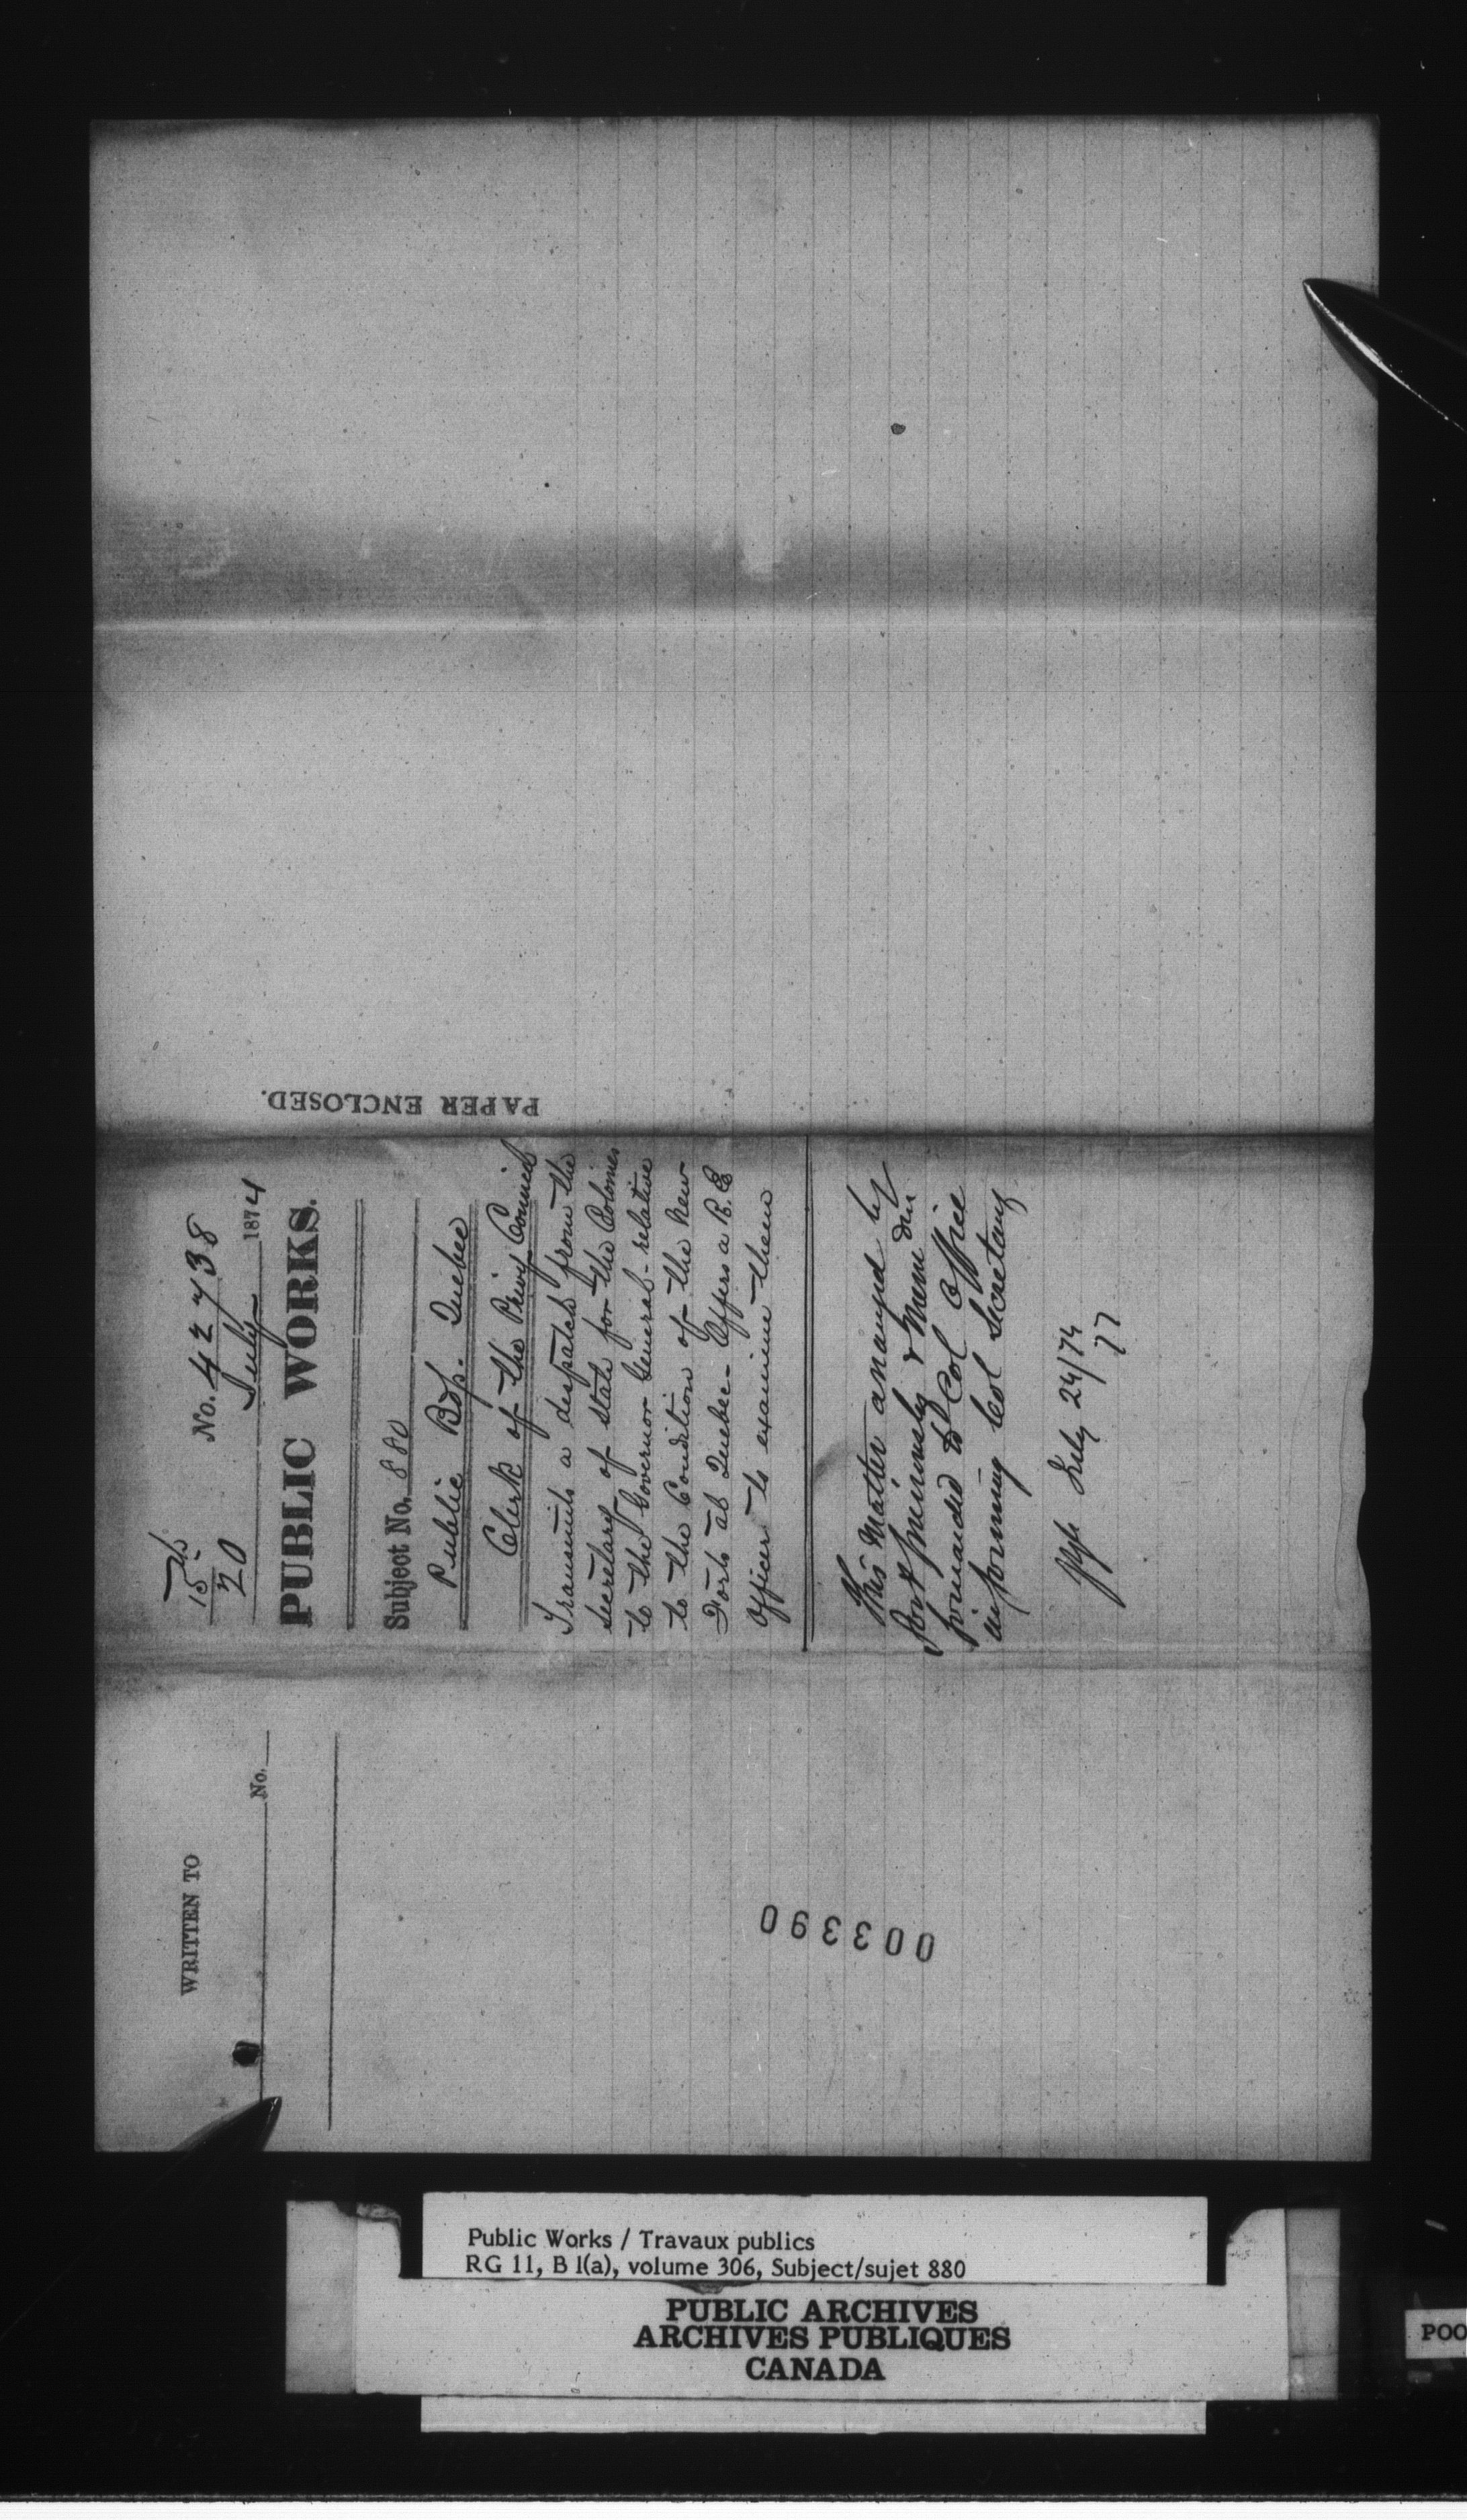 15
20
No. 42738
July 1874
PUBLIC WORKS.
Subject No. 880
Public Bdgs. Quebec
Clerk of the Privy Council
Transmits a despatch from the
Secretary of State for the Colonies
to the Governor General - relative
to the Condition of the New
Forts at Quebec - Offers a R.E
Officer to examine them
This Matter arranged by
forwarded to Col Office
informing Col Secretary
July 24/74
77
PAPER ENCLOSED.
WRITTEN TO
No.
003390
Public Works / Travaux publics
RG 11, B 1(a), volume 306, Subject/sujet 880
PUBLIC ARCHIVES
ARCHIVES PUBLIQUES
CANADA
POO